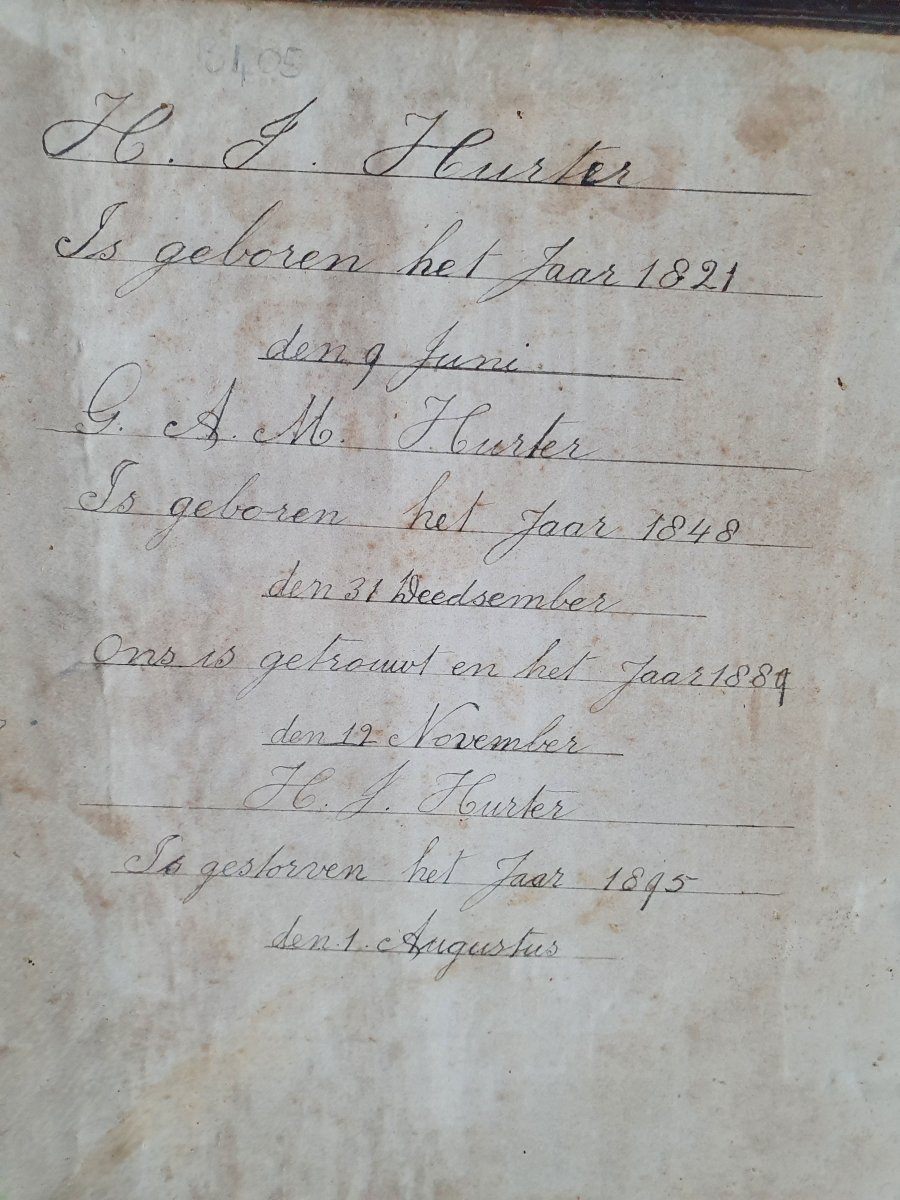 3405
H. J. Hurter
Is geboren het Jaar 1821
den 9 Juni
G. A. M. Hurter
Is geboren het Jaar 1848
den 31 Deedsember
Ons is getrouwt en het Jaar 1889
den 12 November
H. J. Hurter
Is gestorven het Jaar 1895
den 1. Augustus